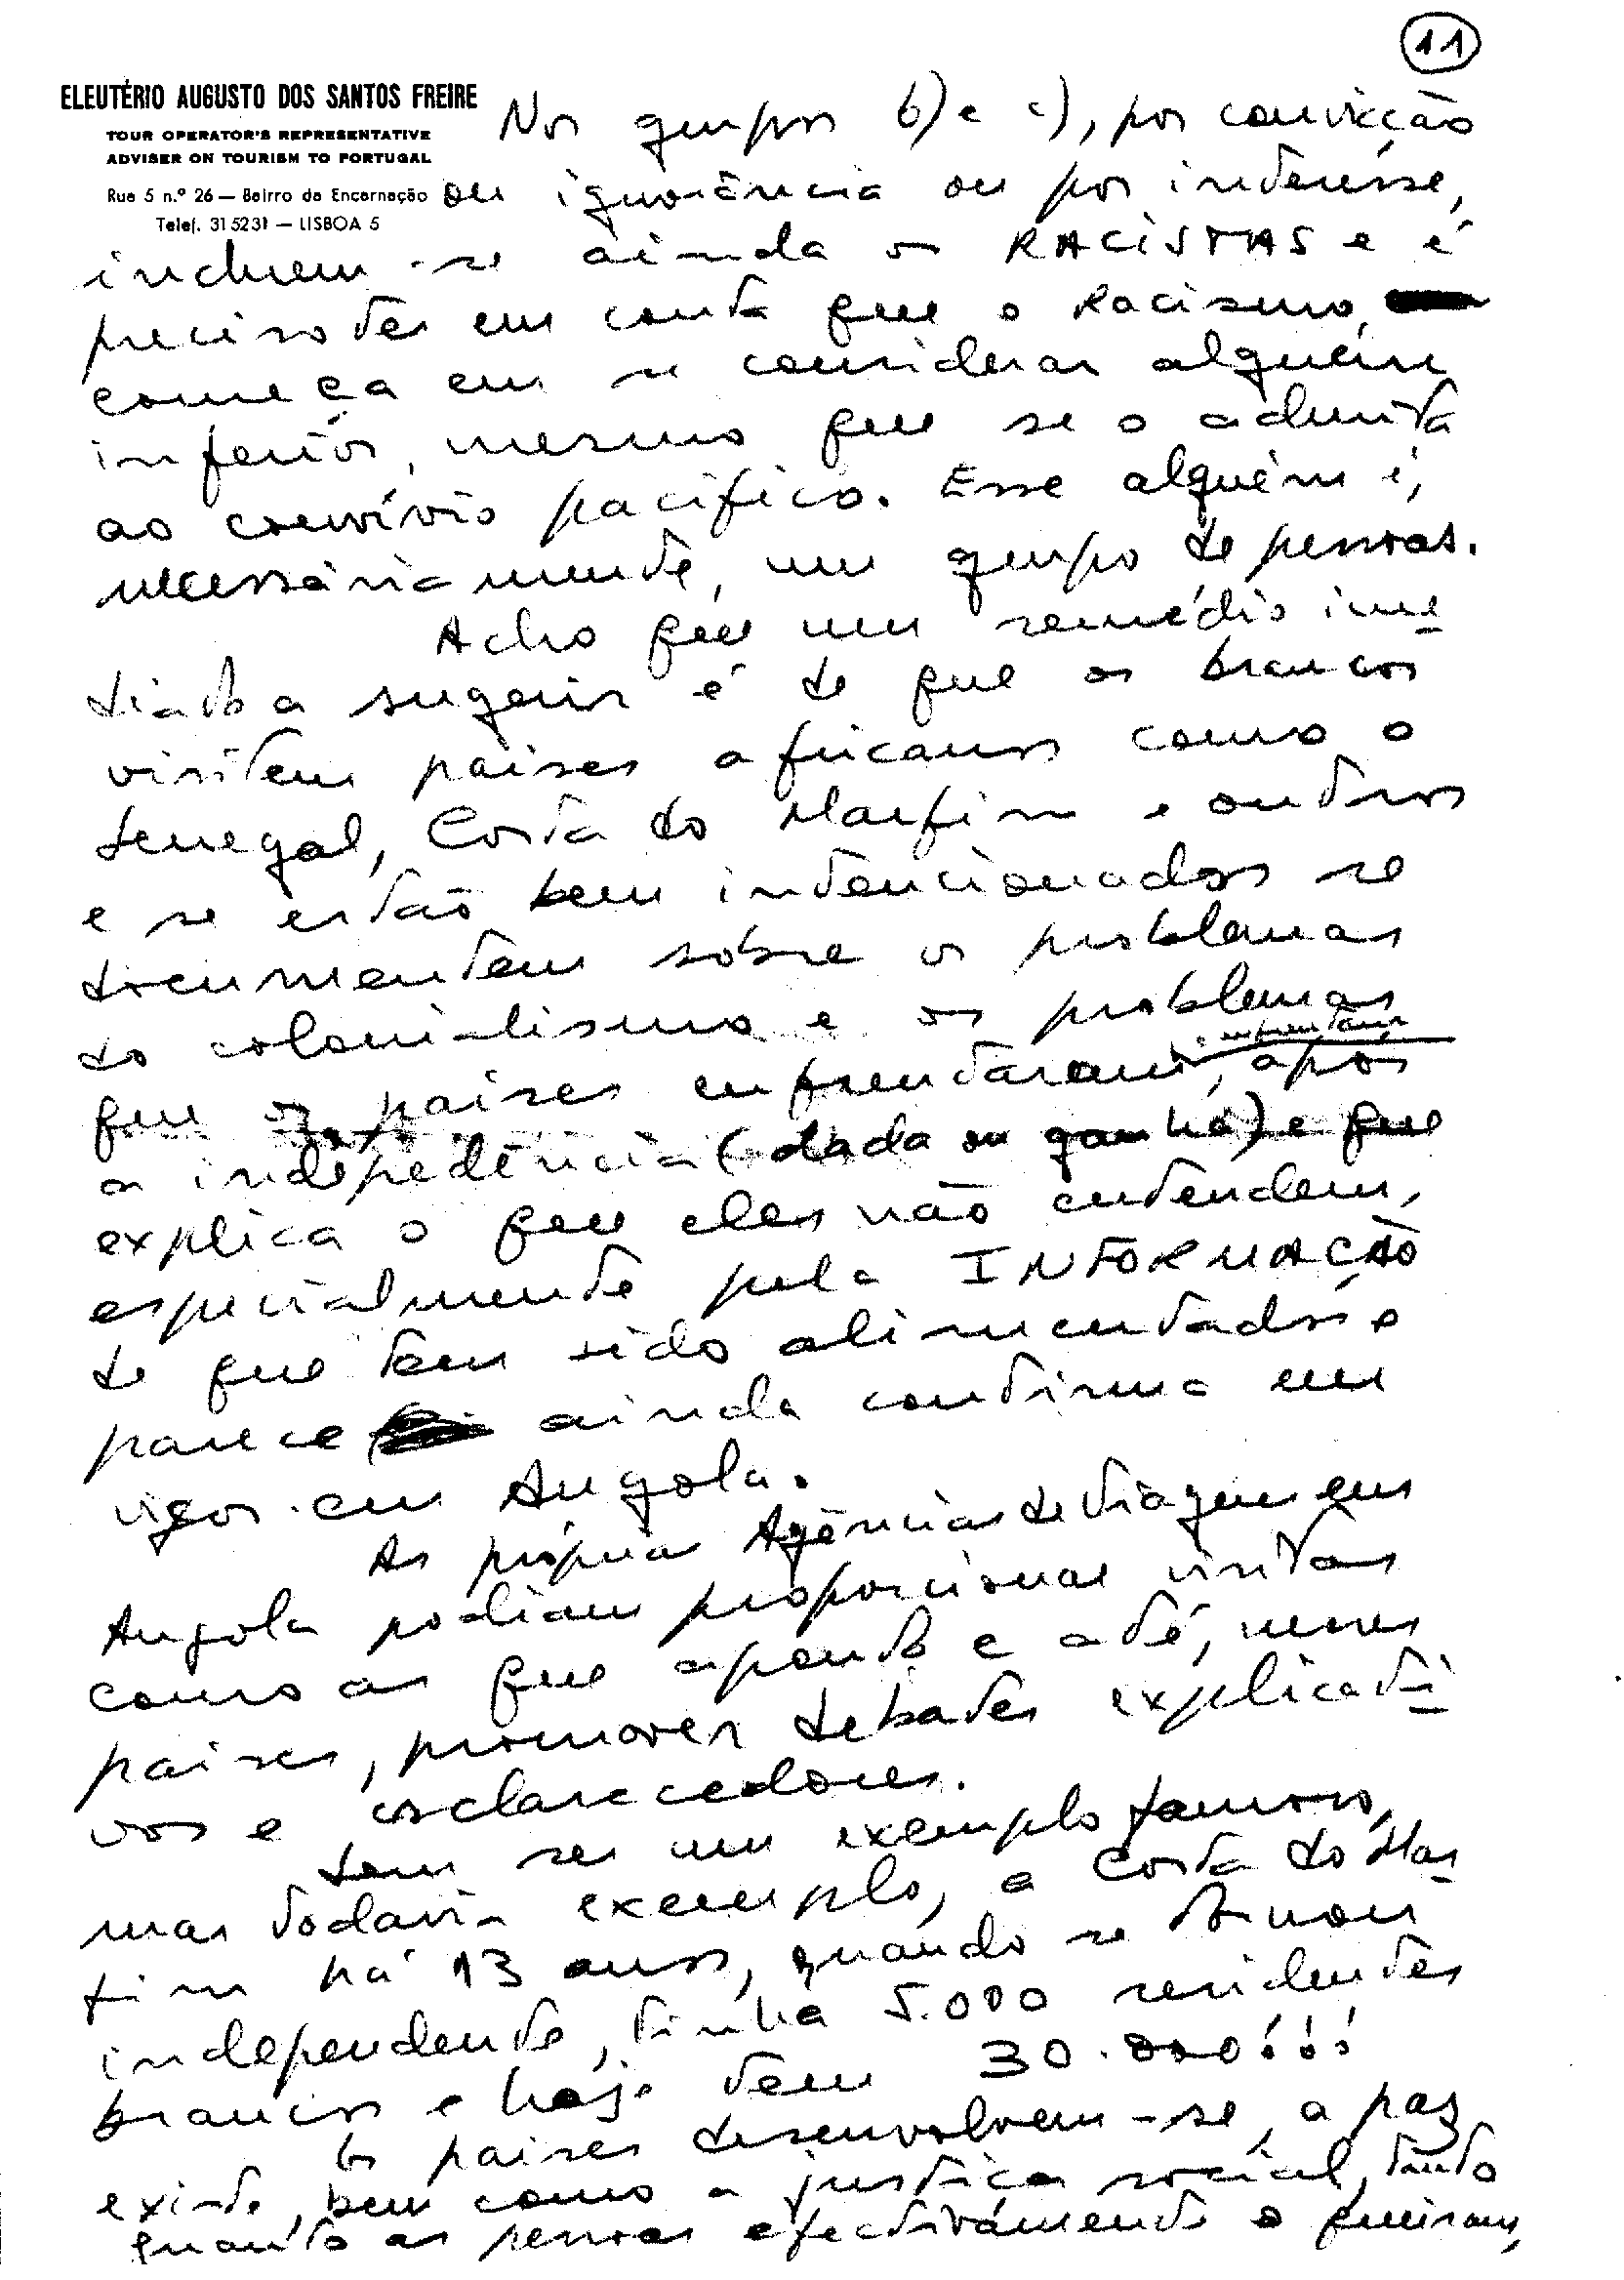 11
ELEUTÉRIO AUGUSTO DOS SANTOS FREIRE
TOUR OPERATOR'S REPRESENTATIVE
ADVISER ON TOURISM TO PORTUGAL
Rua 5 n.º 26 — Bairro da Encarnação
Telef. 315231 — LISBOA 5
Nos grupos b) e c), por convicção
ou ignorância ou por interêsse,
incluem-se ainda os RACISTAS e é
preciso ter em conta que o Racismo,
começa em se considerar alguém
inferior, mesmo que se o admita
ao convívio pacífico. Esse alguém é,
necessáriamente, um grupo de pessoas.
Acho que um remédio ime
diato a sugerir é de que os brancos
visitem paises africanos como o
Senegal, Costa do Marfim e outros
e se estão bem intencionados se
documentem sôbre os problemas
do colonialismo e os problemas
que os paises enfrentaram, após
a indepedência (dada ou ganha) e que
explica o que eles não entendem,
especialmente pela INFORMAÇÃO
de que tem sido alimentados e
parece ainda continua em
vigor em Angola.
As próprias Agências de Viagem em
Angola podiam proporcionar visitas
como as que aponto e até, nesses
paises, promover debates explicati
vos e esclarecedores.
Sem ser um exemplo famoso,
mas todavia exemplo, a Costa do Mar
fim há 13 anos, quando se tornou
independente, tinha 5.000 residentes
brancos e hoje tem 30.000!!!
Os paises desenvolvem-se, a paz
existe, bem como a justiça social, tanto
quanto as pessoas efectivámente o queiram,